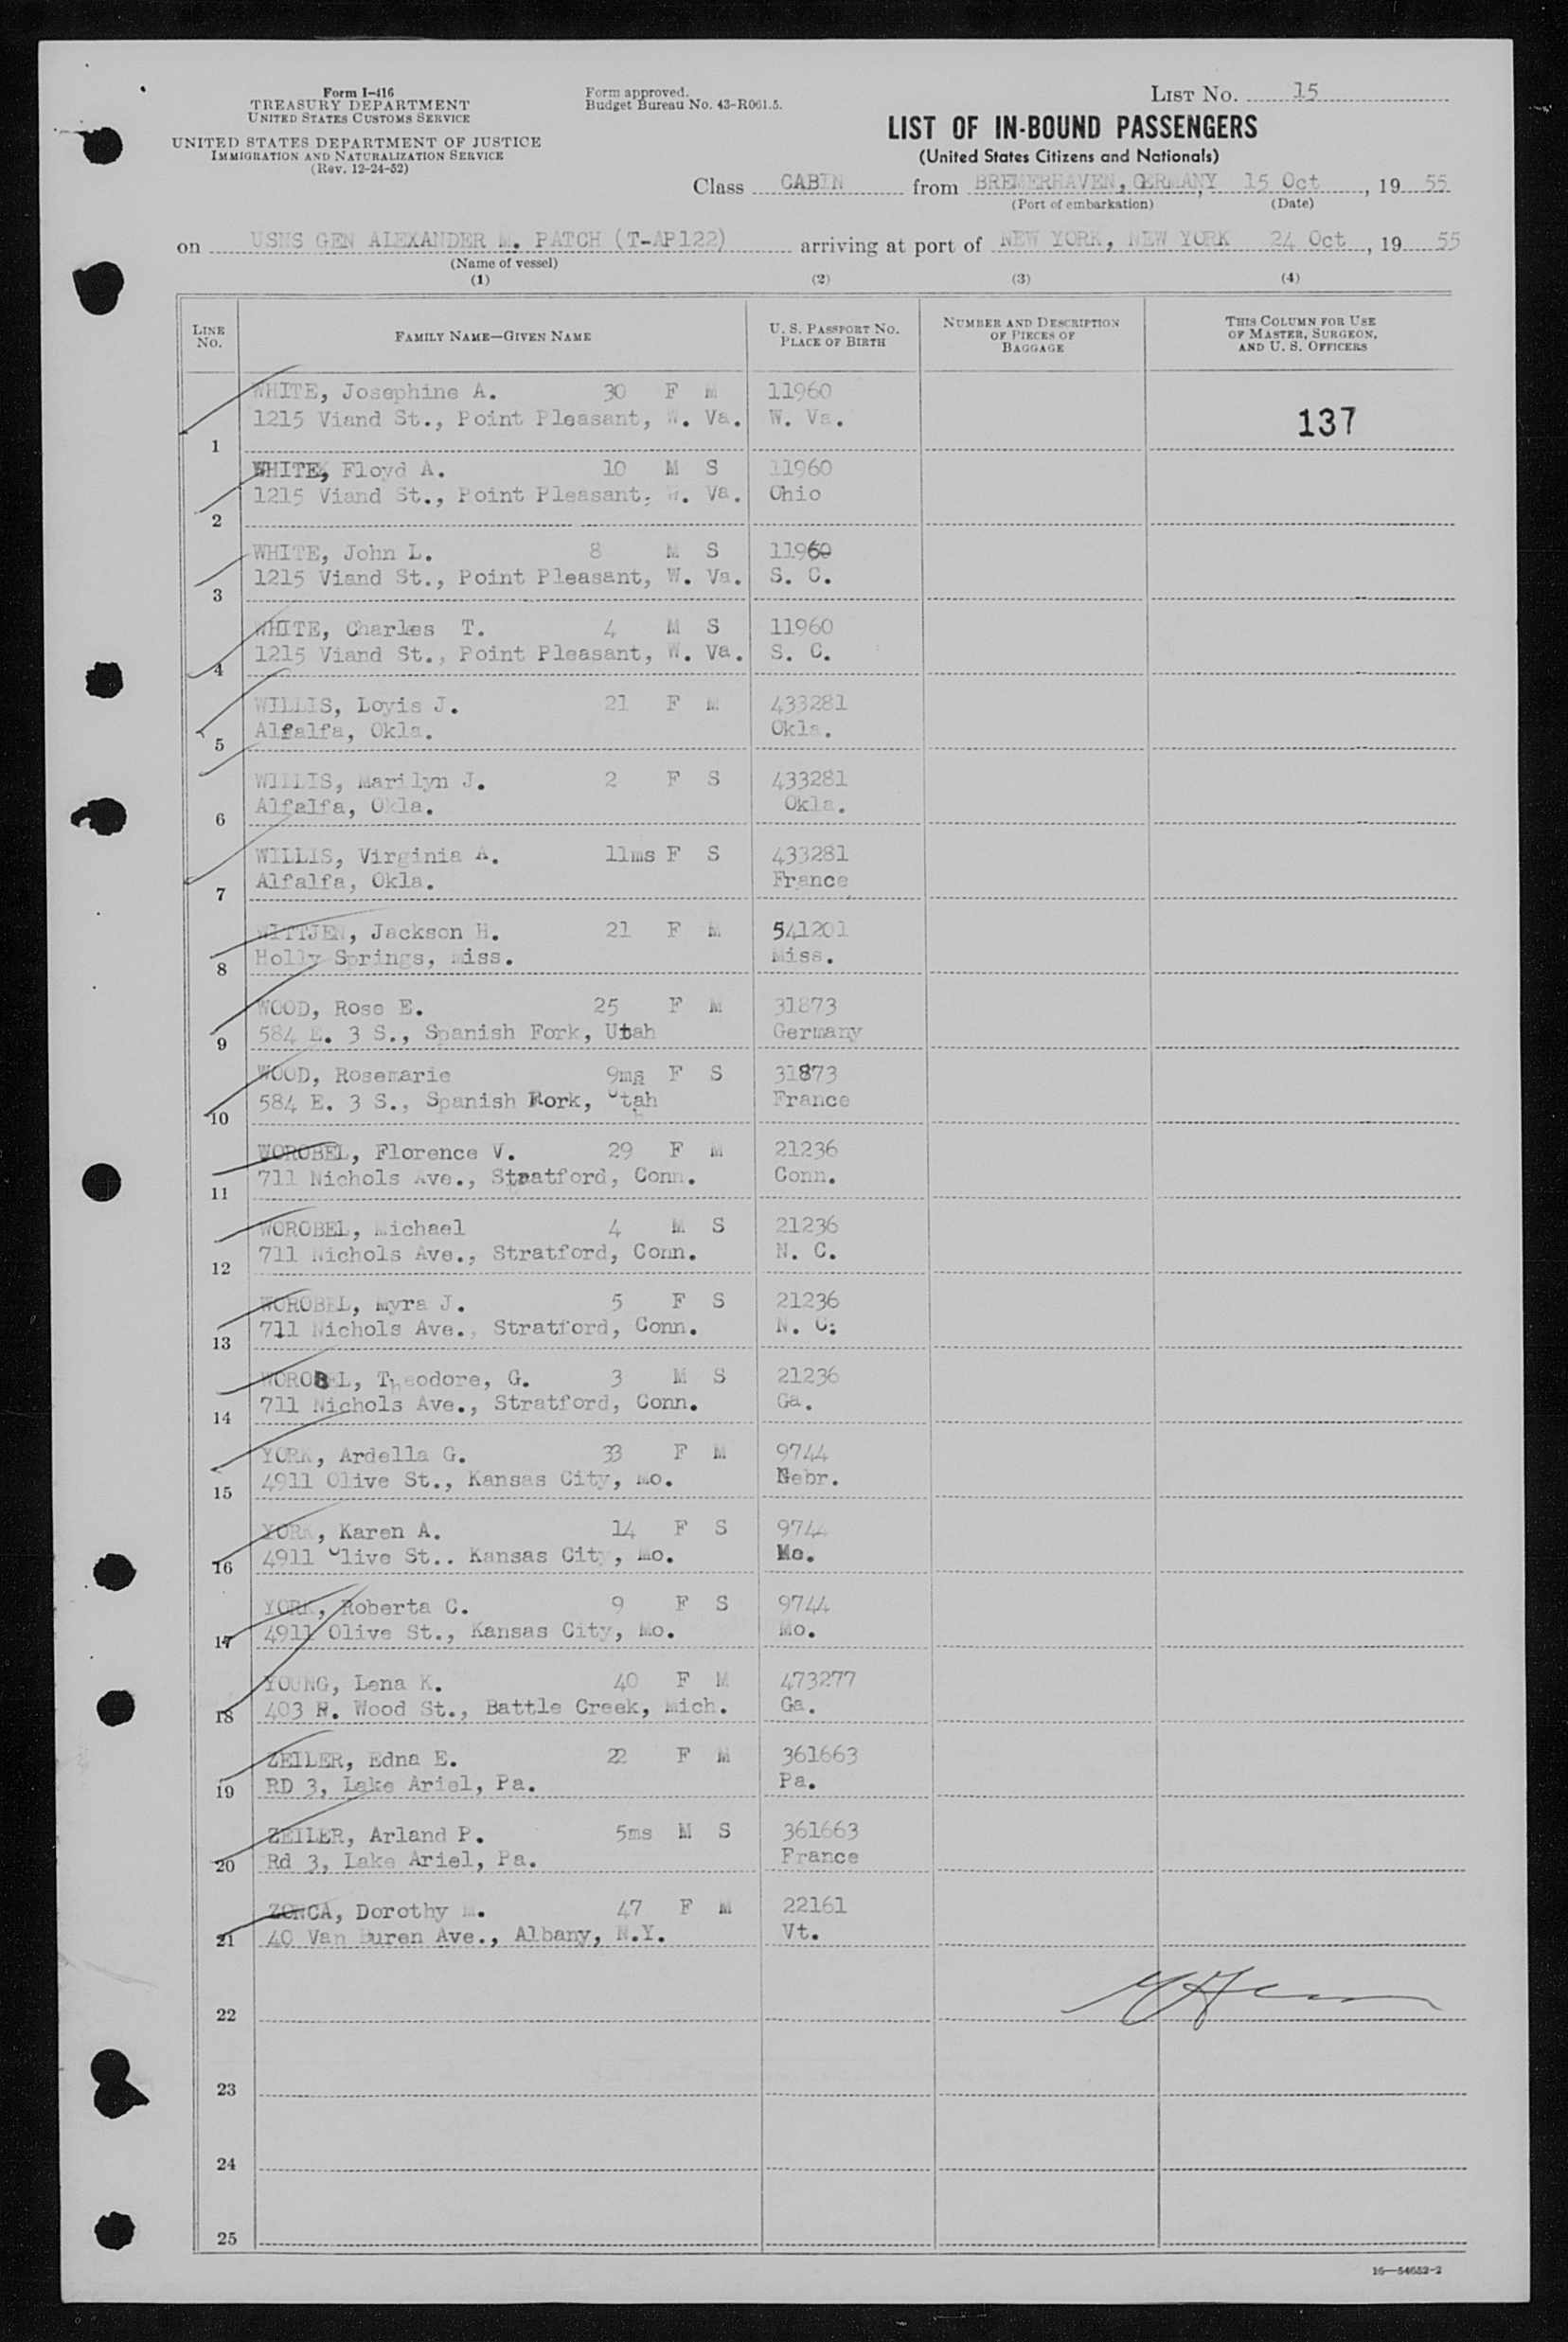 Form I-416
TREASURY DEPARTMENT
UNITED STATES CUSTOMS SERVICE
UNITED STATES DEPARTMENT OF JUSTICE
IMMIGRATION AND NATURALIZATION SERVICE
(Rev. 12-24-52)
Form approved.
Budget Bureau No. 43-R061.5.
LIST NO. 15
LIST OF IN-BOUND PASSENGERS
(United States Citizens and Nationals)
Class CABIN from BREMERHAVEN, GERMANY, 15 Oct, 19 55
(Port of embarkation) (Date)
on USNS GEN ALEXANDER M. PATCH (T-AP122) arriving at port of NEW YORK, NEW YORK 24 Oct, 19 55
(Name of vessel)
(1) (2) (3) (4)
LINE NO. FAMILY NAME—GIVEN NAME U. S. PASSPORT NO. PLACE OF BIRTH NUMBER AND DESCRIPTION OF PIECES OF BAGGAGE THIS COLUMN FOR USE OF MASTER, SURGEON, AND U. S. OFFICERS
WHITE, Josephine A. 30 F M 11960
1215 Viand St., Point Pleasant, W. Va. W. Va. 137
1
WHITE, Floyd A. 10 M S 11960
1215 Viand St., Point Pleasant, W. Va. Ohio
2
WHITE, John L. 8 M S 11960
1215 Viand St., Point Pleasant, W. Va. S. C.
3
WHITE, Charles T. 4 M S 11960
1215 Viand St., Point Pleasant, W. Va. S. C.
4
WILLIS, Loyis J. 21 F M 433281
Alfalfa, Okla. Okla.
5
WILLIS, Marilyn J. 2 F S 433281
Alfalfa, Okla. Okla.
6
WILLIS, Virginia A. 11ms F S 433281
Alfalfa, Okla. France
7
WITTJEN, Jackson H. 21 F M 541201
Holly Springs, Miss. Miss.
8
WOOD, Rose E. 25 F M 31873
584 E. 3 S., Spanish Fork, Utah Germany
9
WOOD, Rosemarie 9ms F S 31873
584 E. 3 S., Spanish Rork, Utah France
10
WOROBEL, Florence V. 29 F M 21236
711 Nichols Ave., Stratford, Conn. Conn.
11
WOROBEL, Michael 4 M S 21236
711 Nichols Ave., Stratford, Conn. N. C.
12
WOROBEL, Myra J. 5 F S 21236
711 Nichols Ave., Stratford, Conn. N. C.
13
WOROBEL, Theodore, G. 3 M S 21236
711 Nichols Ave., Stratford, Conn. Ga.
14
YORK, Ardella G. 33 F M 9744
4911 Olive St., Kansas City, Mo. Nebr.
15
YORK, Karen A. 14 F S 9744
4911 Olive St.. Kansas City, Mo. Mo.
16
YORK, Roberta C. 9 F S 9744
4911 Olive St., Kansas City, Mo. Mo.
17
YOUNG, Lena K. 40 F M 473277
403 Wood St., Battle Creek, Mich. Ga.
18
ZEILER, Edna E. 22 F M 361663
RD 3, Lake Ariel, Pa. Pa.
19
ZEILER, Arland P. 5ms M S 361663
Rd 3, Lake Ariel, Pa. France
20
ZONCA, Dorothy M. 47 F M 22161
40 Van Buren Ave., Albany, N.Y. Vt.
21
22
23
24
25
16—54652-2